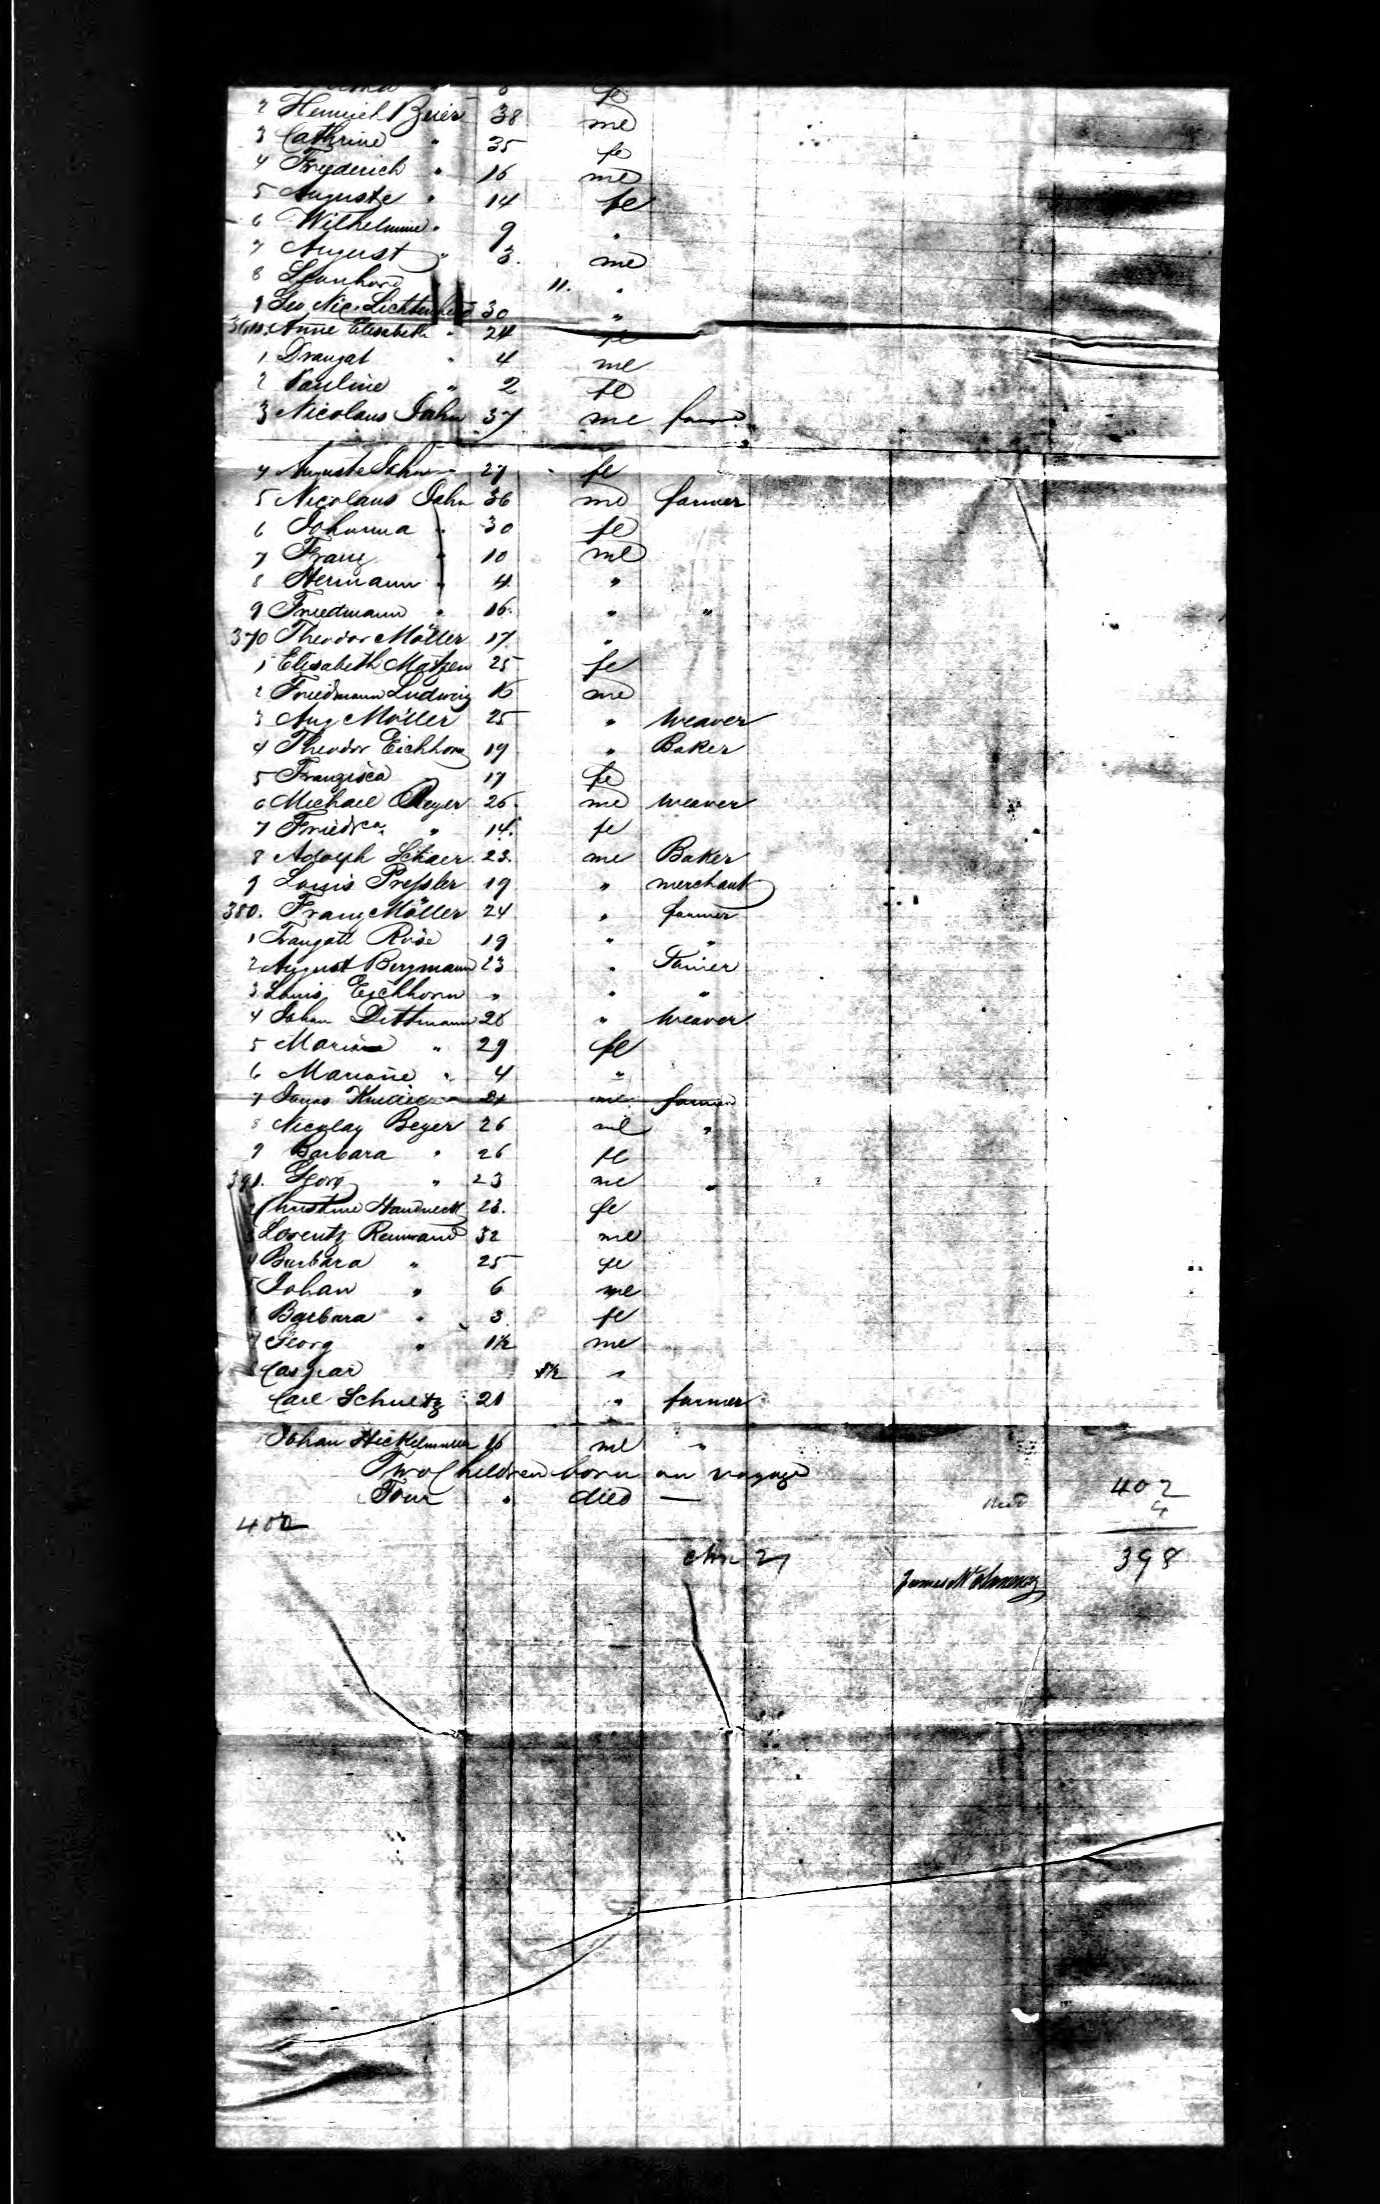 2 Heinrich Beier 38 me
3 Cathrine " 35 fe
4 Friederich " 16 me
5 Auguste " 14 fe
6 Wilhelmine " 9 "
7 August " 3 me
8 11. "
9 Geo Nic. 30 "
Anne Elisabeth " 24 fe
1 Draugat " 4 me
2 Pauline " 2 fe
3 Nicolaus Jahn 37 me
4 Auguste Jahn 27 fe
5 Nicolaus Jahn 36 me farmer
6 Johanna " 30 fe
7 Franz " 10 me
8 Hermann " 4 "
9 Friedmann " 16 " "
370 Theodor Möller 17 "
1 Elisabeth Matzen 25 fe
2 Friedmann Ludwig 16 me
3 Aug Möller 25 " weaver
4 Theodor Eichhorn 19 " Baker
5 Franzisca 17 fe
6 Michael Reyer 26 me weaver
7 Friedr " 14 fe
8 Adolph 23 me Baker
9 Louis Pressler 19 " merchant
380. Franz Möller 24 " farmer
1 Traugott Rose 19 " "
2 August Bergmann 23 "
3 Louis Eichhorn " " "
4 Johan Dittmann 28 " weaver
5 " 29 fe
6 Mariane " 4 "
7 me farmer
8 Nicolay Beyer 26 me "
9 Barbara " 26 fe
Georg " 23 me "
Christine 23. fe
Lorentz 32 me
4 Barbara " 25 fe
5 Johan " 6 me
Barbara " 3 fe
Georg " 1½ me
Caspar "
Carl Schultz 21 " farmer
Johan 16 me "
Two Children born on voyage
Four " died — 402
4
402
398
James